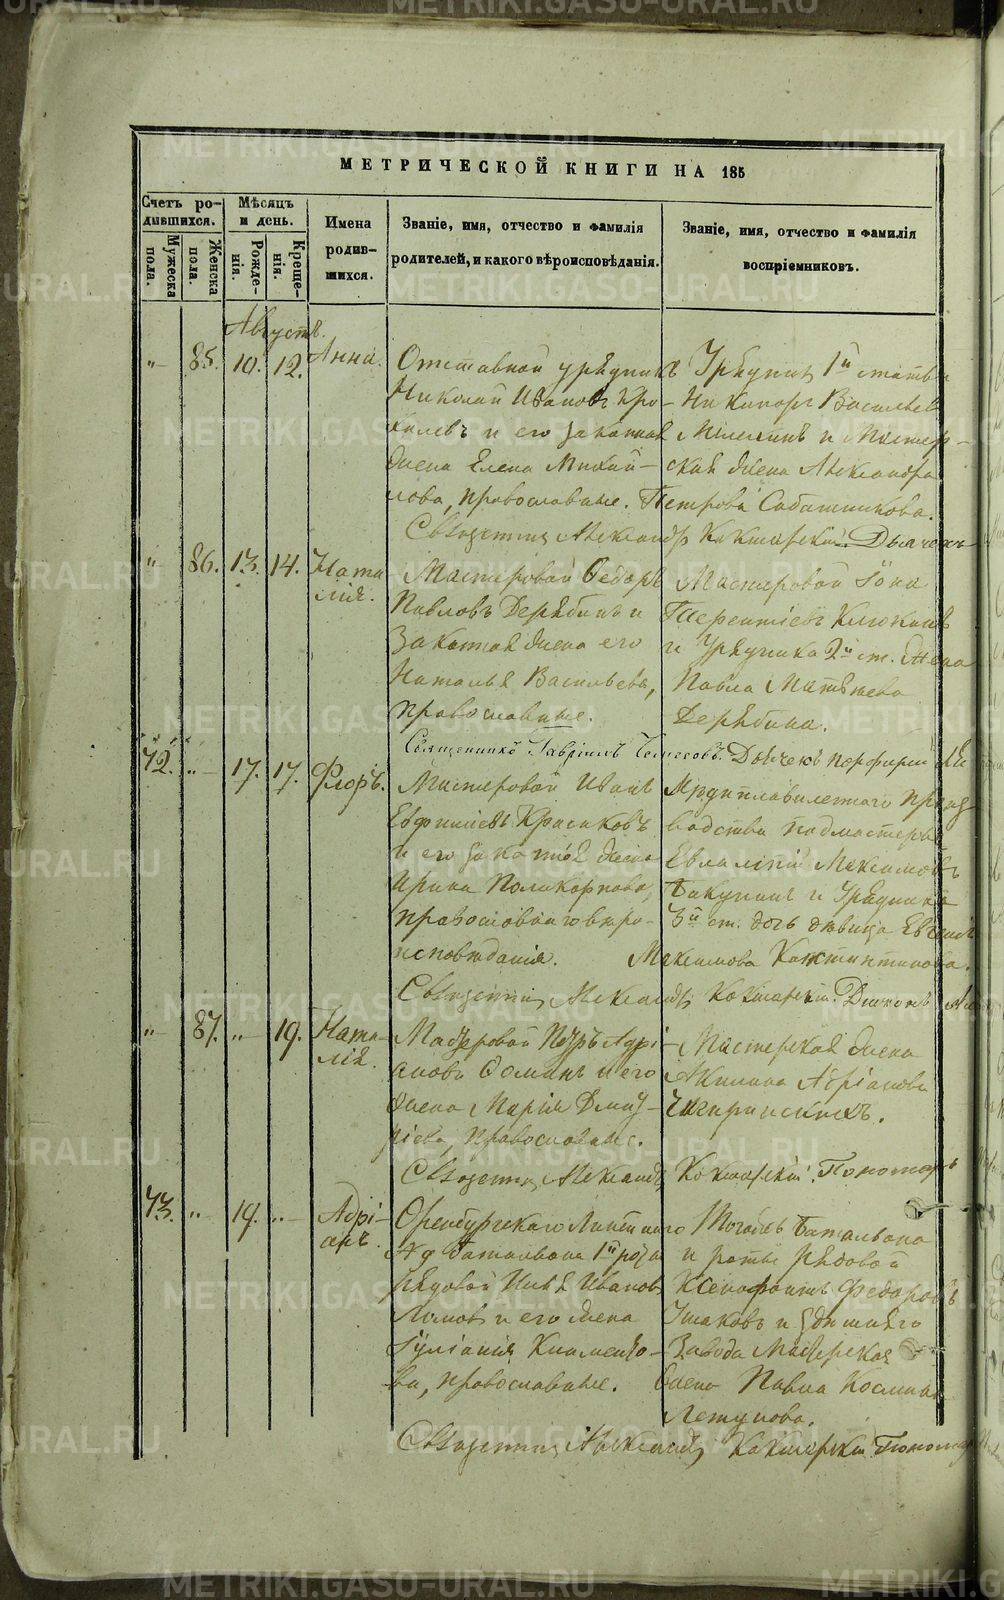 МЕТРИЧЕСКОЙ КНИГИ НА 185
Счетъ ро-
дившихся.
Мужеска
пола.
Женска
пола.
Мѣсяцъ
и день.
Рожде-
нія.
Креще-
нія.
Имена
родив-
шихся.
Званіе, имя, отчество и фамилія
родителей, и какого вѣроисповѣданія.
Званіе, имя, отчество и фамилія
воспріемниковъ.
Августъ.
„ 85. 10. 12. Анна.
Отставной урядникъ
Николай Ивановъ
и его законная
жена Елена Михай-
лова, православные.
Урядникъ 1й статьи
Никифоръ Васильевъ
и Мастер-
ская жена Александра
Петрова Сабанникова.
Священникъ Александръ Кокшарскій. Дьячекъ
„ 86. 13. 14. Ната-
лія.
Мастеровой Ѳедоръ
Павловъ Дерябинъ и
Законная жена его
Наталья Васильева,
православные.
Мастеровой Іона
Терентіевъ Клюкинъ
и Урядника 2й ст. Жена
Павла Матвѣева
Дерябина.
Священникъ Гавріилъ Дьячекъ Порфирій
42. „ 17. 17. Флоръ.
Мастеровой Иванъ
Евфиміевъ Красиковъ
и его законная жена
Ирина Поликарпова,
православнаго вѣро-
исповѣданія.
Мѣдиплавиленнаго произ
водства подмастерье
Евлампій Максимовъ
Бакунинъ и Урядника
3й ст. дочь дѣвица Евгенія
Максимова Константинова.
Священникъ Александръ Кокшарскій. Дьяконъ
„ 87. „ 19. Ната-
лія.
Мастеровой Петръ Адрі-
ановъ Ѳоминъ и его
жена Марія Дмит-
ріева, православные.
Мастерская жена
Акилина Адріанова
Священникъ Александръ Кокшарскій. Пономарь
43. „ 19. „ Адрі-
анъ.
Оренбургскаго Линейнаго
№ баталіона 1й роты
рядовой Илья Ивановъ
и его жена
Іуліанія Клименто-
ва, православные.
Тогожъ баталіона
и роты рядовой
Ксенофонтъ Федоровъ
Ушаковъ и здѣшняго
Завода Мастерская
жена Павла Космина
Летунова.
Священникъ Александръ Кокшарскій Пономарь
METRIKI.GASO-URAL.RU